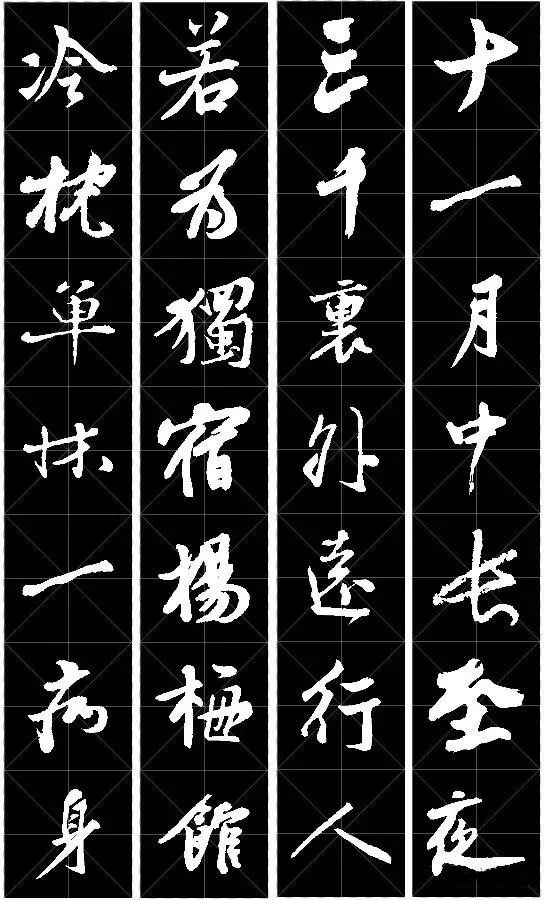 十一月中长至夜
三千裏外遠行人
若为獨宿楊梅館
冷枕单牀一病身